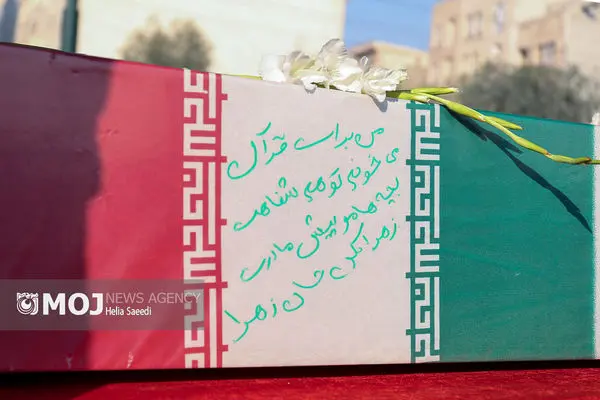 من برات قرآن
می خونم تو هم شفاعت
بچه هامو پیش مادرت
زهرا بکن جان زهرا
MOJ NEWS AGENCY
Helia Saeedi